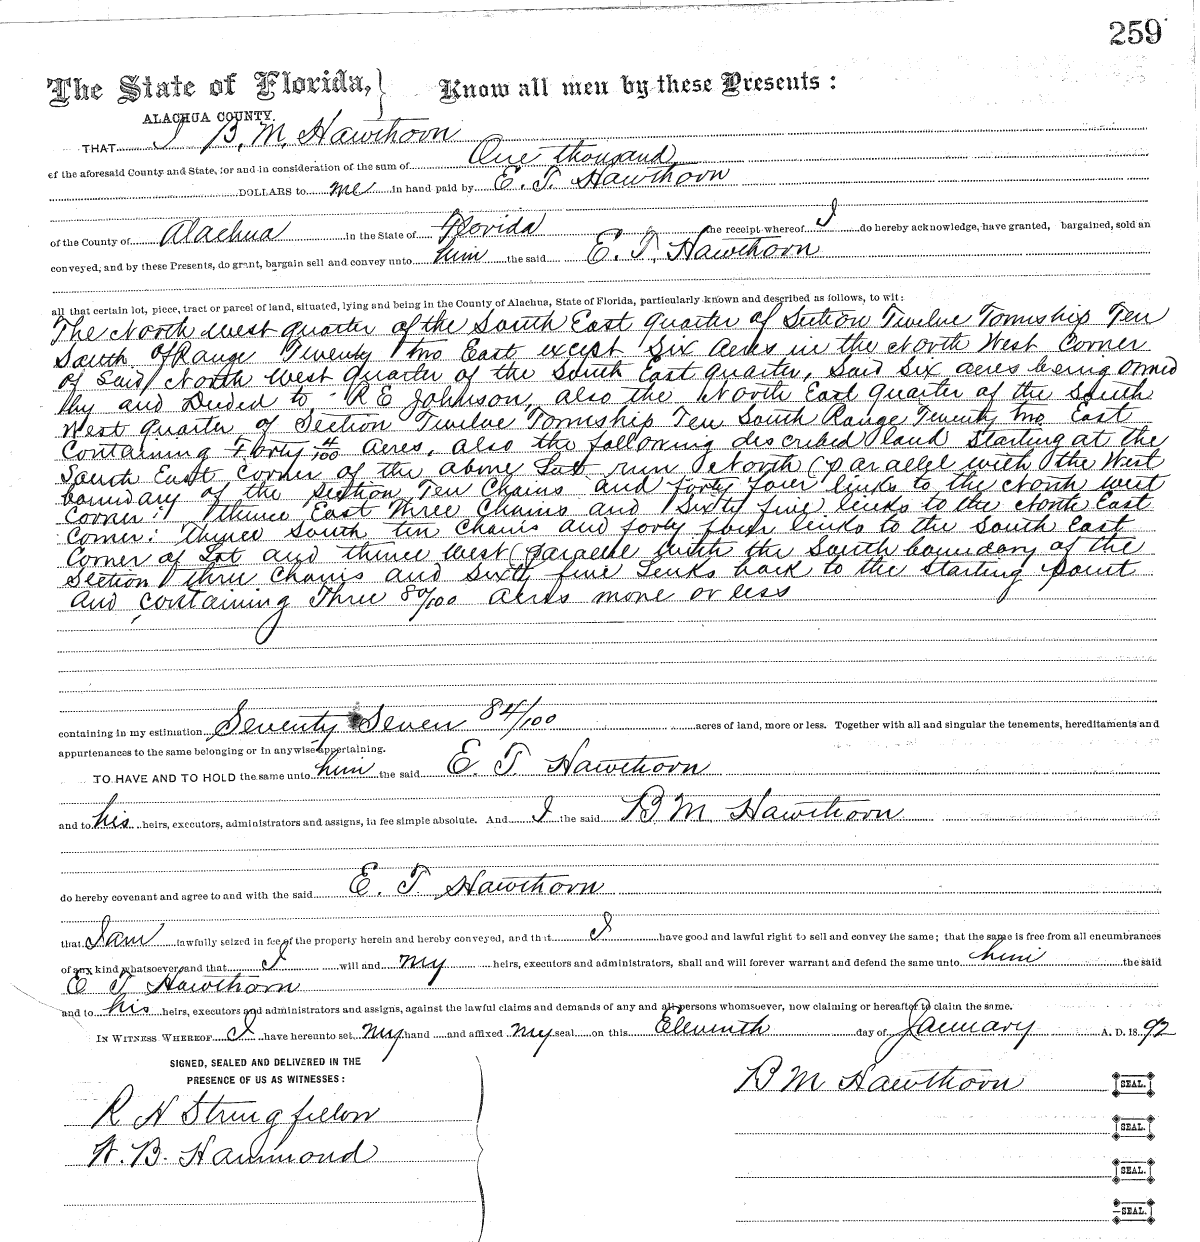 259
The State of Florida, } Know all men by these Presents :
ALACHUA COUNTY.
THAT I B. M. Hawthorn
of the aforesaid County and State, for and in consideration of the sum of One thousand
DOLLARS to me in hand paid by E. T. Hawthorn
of the County of Alachua in the State of Florida the receipt whereof I do hereby acknowledge, have granted, bargained, sold an
conveyed, and by these Presents, do grant, bargain sell and convey unto him the said E. T. Hawthorn
all that certain lot, piece, tract or parcel of land, situated, lying and being in the County of Alachua, State of Florida, particularly known and described as follows, to wit:
The North West quarter of the South East quarter of Section Twelve Township Ten
South of Range Twenty two East except Six Acres in the North West Corner
of Said North West quarter of the South East quarter, Said Six acres being owned
by and Deeded to R E Johnson, also the North East quarter of the South
West quarter of Section Twelve Township Ten South Range Twenty two East
Containing Forty 4/100 Acres, also the following described land Starting at the
South East corner of the above Lot run North (parallel with the West
boundary of the section Ten Chains and forty four links to the North west
Corner: thence East Three Chains and Sixty five links to the North East
Corner: thence South ten Chains and forty four links to the South East
Corner of Lot and thence West (parallel with the South boundary of the
Section three Chains and Sixty five Links back to the starting point
and containing Three 80/100 acres more or less
containing in my estimation Seventy Seven 84/100 acres of land, more or less. Together with all and singular the tenements, hereditaments and
appurtenances to the same belonging or in anywise appertaining.
TO HAVE AND TO HOLD the same unto him the said E. T Hawthorn
and to his heirs, executors, administrators and assigns, in fee simple absolute. And I the said B M Hawthorn
do hereby covenant and agree to and with the said E. T Hawthorn
that I am lawfully seized in fee of the property herein and hereby conveyed, and that I have good and lawful right to sell and convey the same; that the same is free from all encumbrances
of any kind whatsoever and that I will and my heirs, executors and administrators, shall and will forever warrant and defend the same unto him the said
E T Hawthorn
and to his heirs, executors and administrators and assigns, against the lawful claims and demands of any and all persons whomsoever, now claiming or hereafter to claim the same.
IN WITNESS WHEREOF I have hereunto set my hand and affixed my seal on this Eleventh day of January A. D. 1892
SIGNED, SEALED AND DELIVERED IN THE
PRESENCE OF US AS WITNESSES:
B M Hawthorn SEAL.
R H Stringfellow
SEAL.
W. B. Hammond
SEAL.
SEAL.